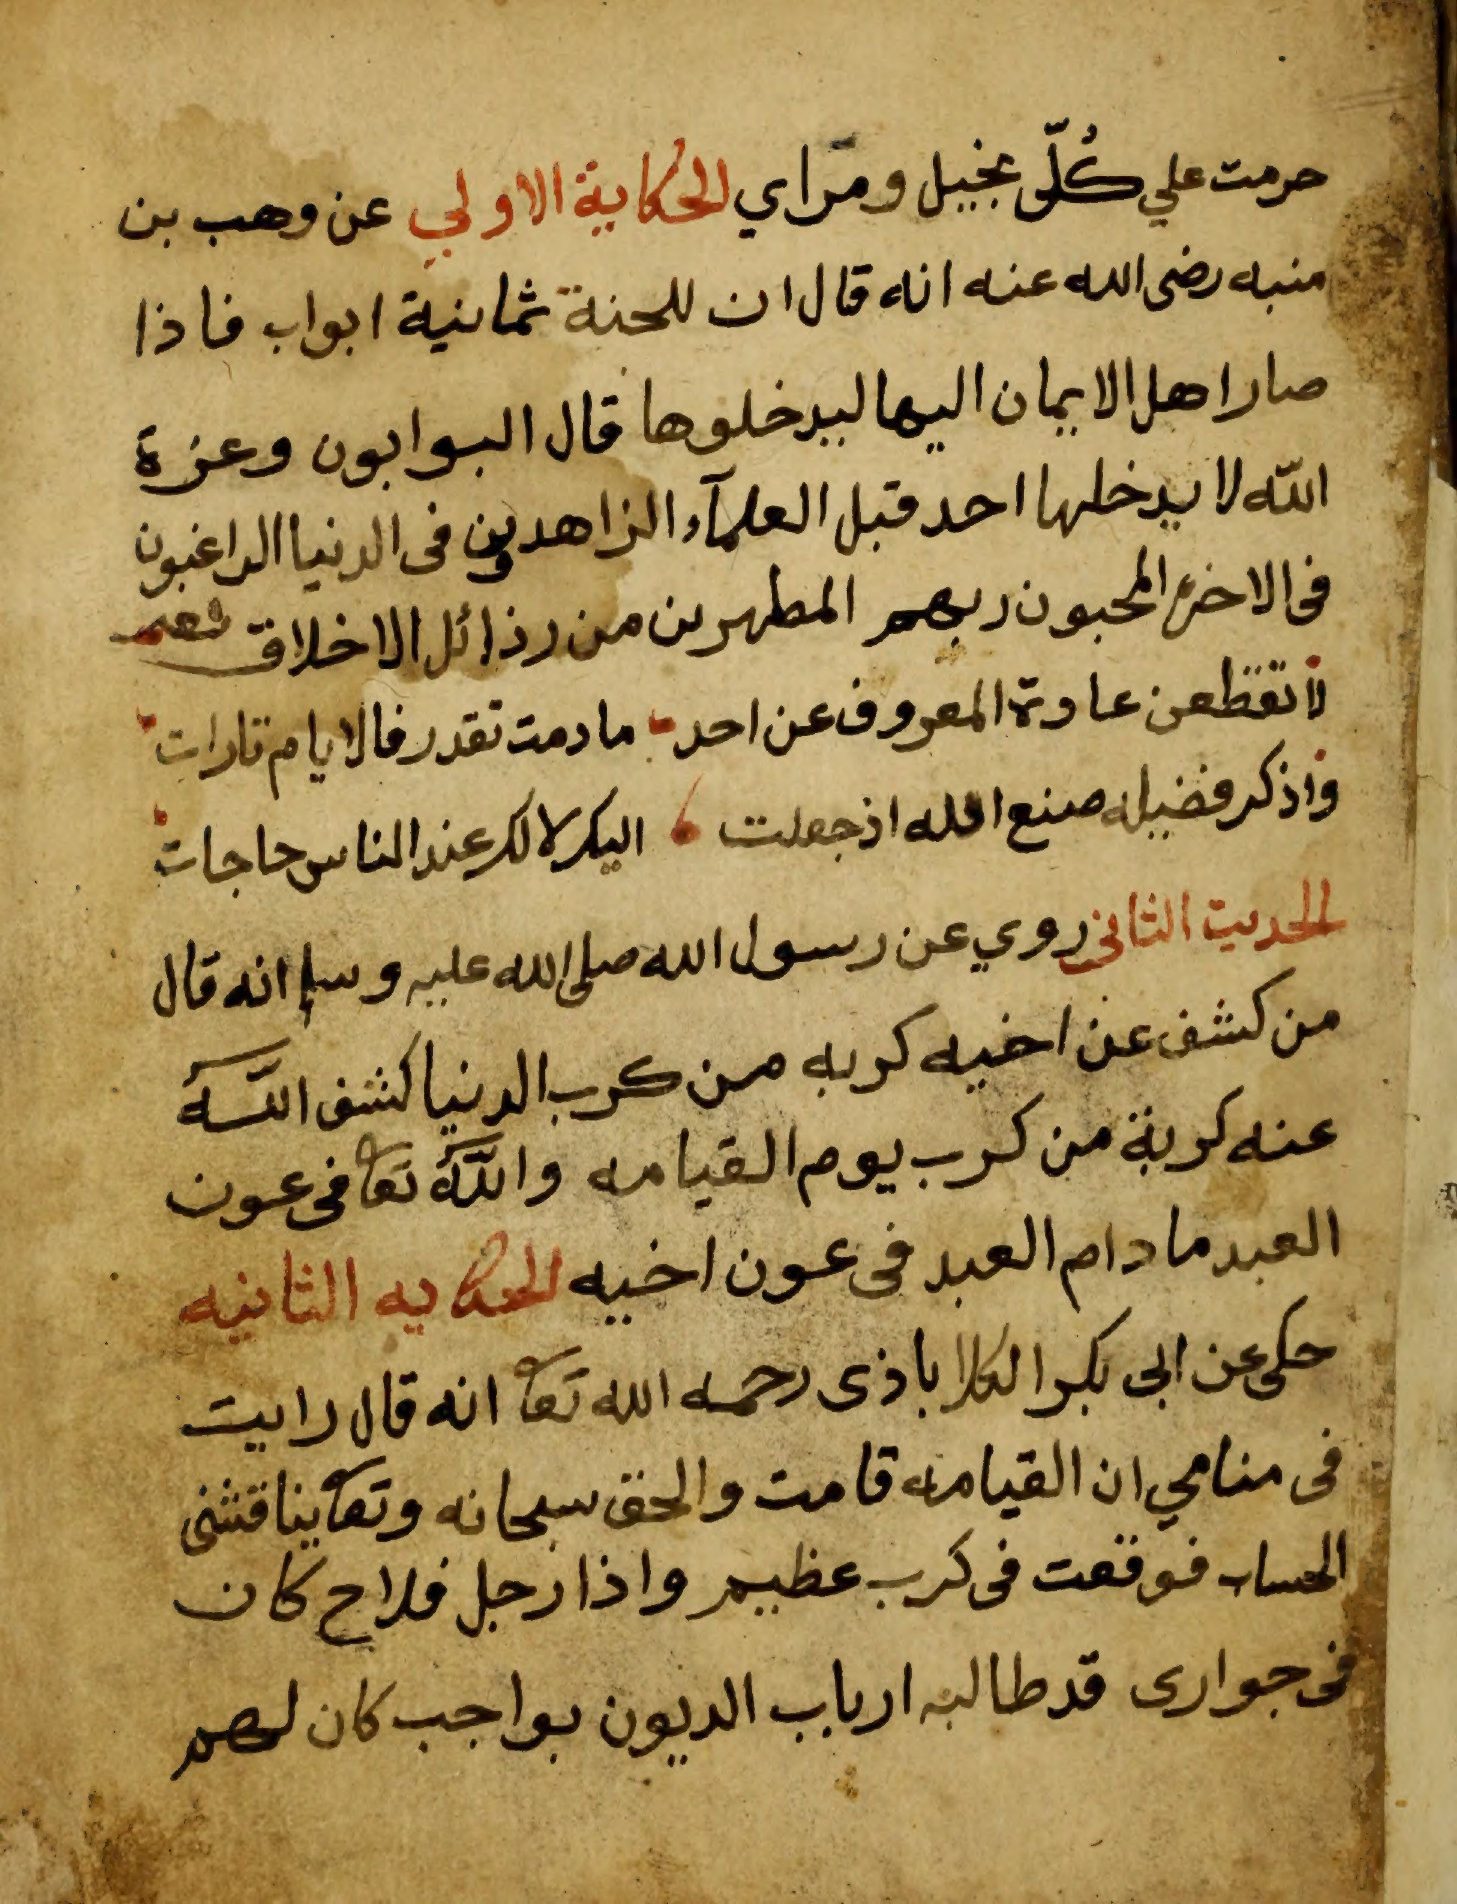 حرمت علي كُلّ بخيل ومراي الحكاية الاولي عن وهب بن
منبه رضى الله عنه انه قال ان للجنة ثمانية ابواب فاذا
صار اهل الايمان اليها ليدخلوها قال البوابون وعزة
اللّه لا يدخلها احد قبل العلمآء الزاهدون فى الدنيا الراغبون
فى الاخرة المحبون ربهم المطهرين من رذائل الاخلاق شعر
لا تقطعن عادة المعروف عن احد ما دمت تقدر فالايام تارات
واذكر فضيله صنع الله اذ جعلت اليك لا لك عند الناس حاجات
الحديث الثانى روي عن رسول الله صلى الله عليه وسلم انه قال
من كشف عن اخيه كربه من كرب الدنيا كشف اللّه
عنه كربة من كرب يوم القيامه واللّه تعا فى عون
العبد ما دام العبد فى عون اخيه الحكايه الثانيه
حكى عن ابى بكر الكلاباذى رحمه الله تعا انه قال رايت
فى منامي ان القيامه قامت والحق سبحانه وتعا يناقشنى
الحساب فوقعت فى كرب عظيم واذا رجل فلاح كان
فى جوارى قد طالبه ارباب الديون بواجب كان لهم